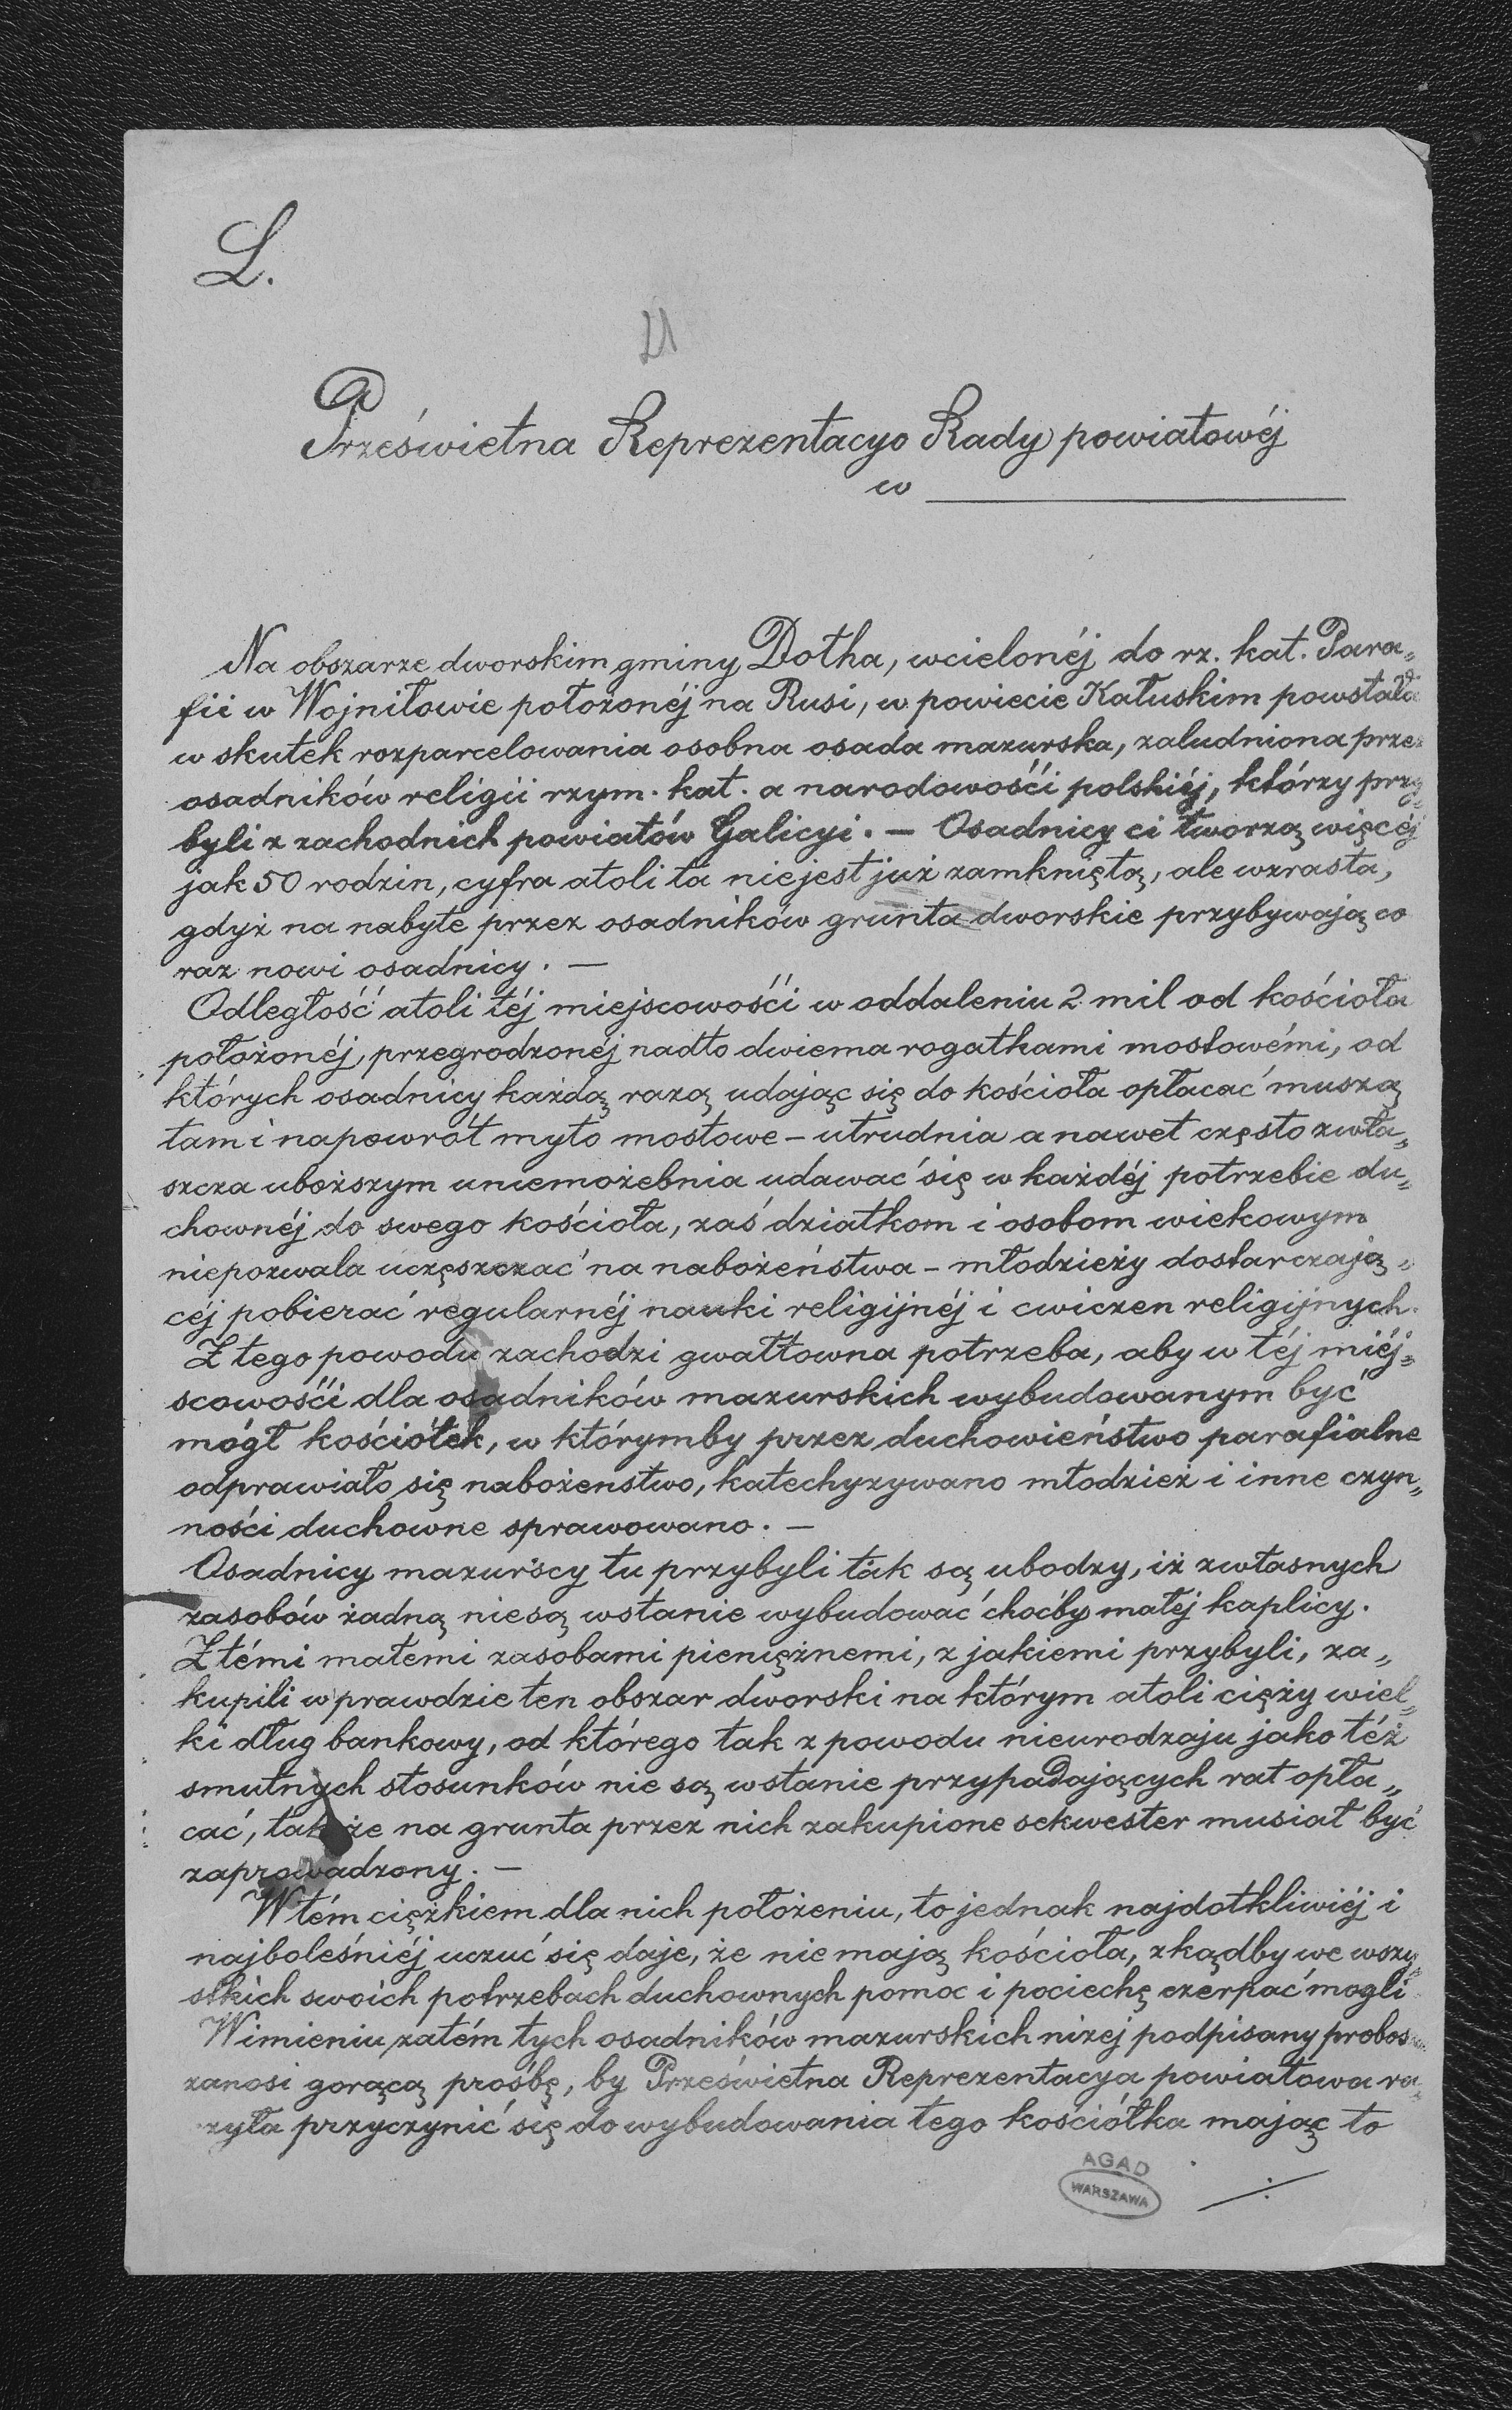 L.
21
Prześwietna Reprezentacyo Rady powiatowéj
w
Na obszarze dworskim gminy Dołha, wcielonéj do rz. kat. Para„
fii w Wojniłowie położonéj na Rusi, w powiecie Kałuskim powstała
w skutek rozparcelowania osobna osada mazurska, zaludniona przez
osadników religii rzym. kat. a narodowości polskiéj, którzy przy„
byli z zachodnich powiatów Galicyi. — Osadnicy ci tworzą więcéj
jak 50 rodzin, cyfra atoli ta niejest już zamkniętą, ale wzrasta,
gdyż na nabyte przez osadników grunta dworskie przybywają co
raz nowi osadnicy. —
Odległość atoli téj miejscowości w oddaleniu 2 mil od kościoła
położonéj, przegrodzonéj nadto dwiema rogatkami mostowémi, od
których osadnicy każdą razą udając się do kościoła opłacać muszą
tam i napowrót myto mostowe – utrudnia a nawet często zwła„
szcza uboższym uniemożebnia udawać się w każdéj potrzebie du„
chownéj do swego kościoła, zaś dziatkom i osobom wiekowym
niepozwala uczęszczać na nabożeństwa – młodzieży dostarczają„
céj pobierać regularnéj nauki religijnéj i cwiczen religijnych.
Z tego powodu zachodzi gwałtowna potrzeba, aby w téj miéj„
scowości dla osadników mazurskich wybudowanym być
mógł kościółek, w którymby przez duchowieństwo parafialne
odprawiało się nabożenstwo, katechyzywano młodzież i inne czyn„
ności duchowne sprawowano. —
Osadnicy mazurscy tu przybyli tak są ubodzy, iż zwłasnych
zasobów żadną niesą wstanie wybudować choćby małéj kaplicy.
Z témi małemi zasobami pieniężnemi, z jakiemi przybyli, za„
kupili wprawdzie ten obszar dworski na którym atoli cięży wiel„
ki dług bankowy, od którego tak z powodu nieurodzaju jako téż
smutnych stosunków nie są wstanie przypadających rat opła„
cać, tak że na grunta przez nich zakupione sekwester musiał być
zaprowadzony. —
W tém ciężkiem dla nich położeniu, to jednak najdotkliwiéj i
najboleśniéj uczuć się daje, że nie mają kościoła, zkądby we wszy„
stkich swoich potrzebach duchownych pomoc i pociechę czerpać mogli
Wimieniu zatém tych osadników mazurskich niżej podpisany probos
zanosi gorącą prośbę, by Prześwietna Reprezentacya powiatowa ra„
czyła przyczynić się do wybudowania tego kościółka mając to
AGAD
WARSZAWA
./.